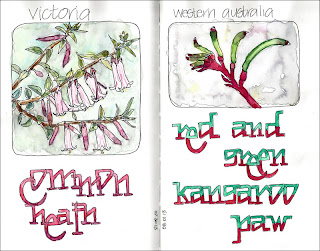 victoria
common
heath
western australia
red and
green
kangaroo
paw